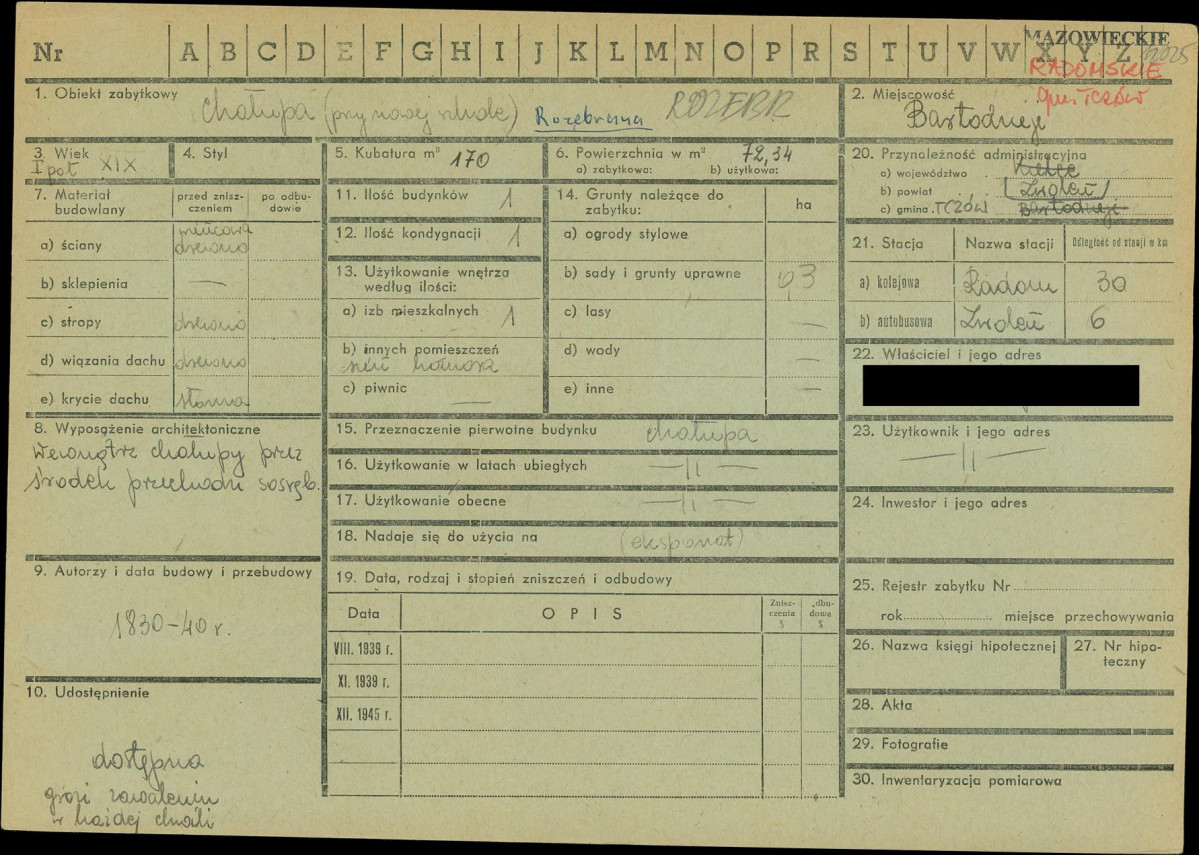 Nr A B C D E F G H I J K L M N O P R S T U V W X Y Z
MAZOWIECKIE
RADOMSKIE
gm. TCZÓW
1. Obiekt zabytkowy
chałupa (przy nowej szkole) Rozebrana ROZEBR
2. Miejscowość
Bartodzieje
3. Wiek
I poł XIX
4. Styl
5. Kubatura m³ 170
6. Powierzchnia w m² 72,34
a) zabytkowa: b) użytkowa:
7. Materiał budowlany
przed zniszczeniem
po odbudowie
a) ściany
drewno
b) sklepienia —
c) stropy drewno
d) wiązania dachu drewno
e) krycie dachu słoma
8. Wyposążenie architektoniczne
Wewnątrz chałupy przez
środek przechodzi sosręb.
9. Autorzy i data budowy i przebudowy
1830-40 r.
10. Udostępnienie
dostępna
grozi zawaleniem
w każdej chwili
11. Ilość budynków 1
12. Ilość kondygnacji 1
13. Użytkowanie wnętrza
według ilości:
a) izb mieszkalnych 1
b) innych pomieszczeń
sień komora
c) piwnic —
14. Grunty należące do
zabytku:
ha
a) ogrody stylowe
b) sady i grunty uprawne 0,3
c) lasy —
d) wody —
e) inne —
15. Przeznaczenie pierwotne budynku chałupa
16. Użytkowanie w latach ubiegłych — 11 —
17. Użytkowanie obecne — 11 —
18. Nadaje się do użycia na (eksponat)
19. Data, rodzaj i stopień zniszczeń i odbudowy
Data
OPIS
Zniszczenia %
Odbudowa %
VIII. 1939 r.
XI. 1939 r.
XII. 1945 r.
20. Przynależność administracyjna
a) województwo Kielce
b) powiat (Zwoleń)
c) gmina TCZÓW Bartodzieje
21. Stacja
Nazwa stacji
Odległość od stacji w km
a) kolejowa Radom 30
b) autobusowa Zwoleń 6
22. Właściciel i jego adres
23. Użytkownik i jego adres
— 11 —
24. Inwestor i jego adres
25. Rejestr zabytku Nr
rok miejsce przechowywania
26. Nazwa księgi hipotecznej
27. Nr hipoteczny
28. Akta
29. Fotografie
30. Inwentaryzacja pomiarowa